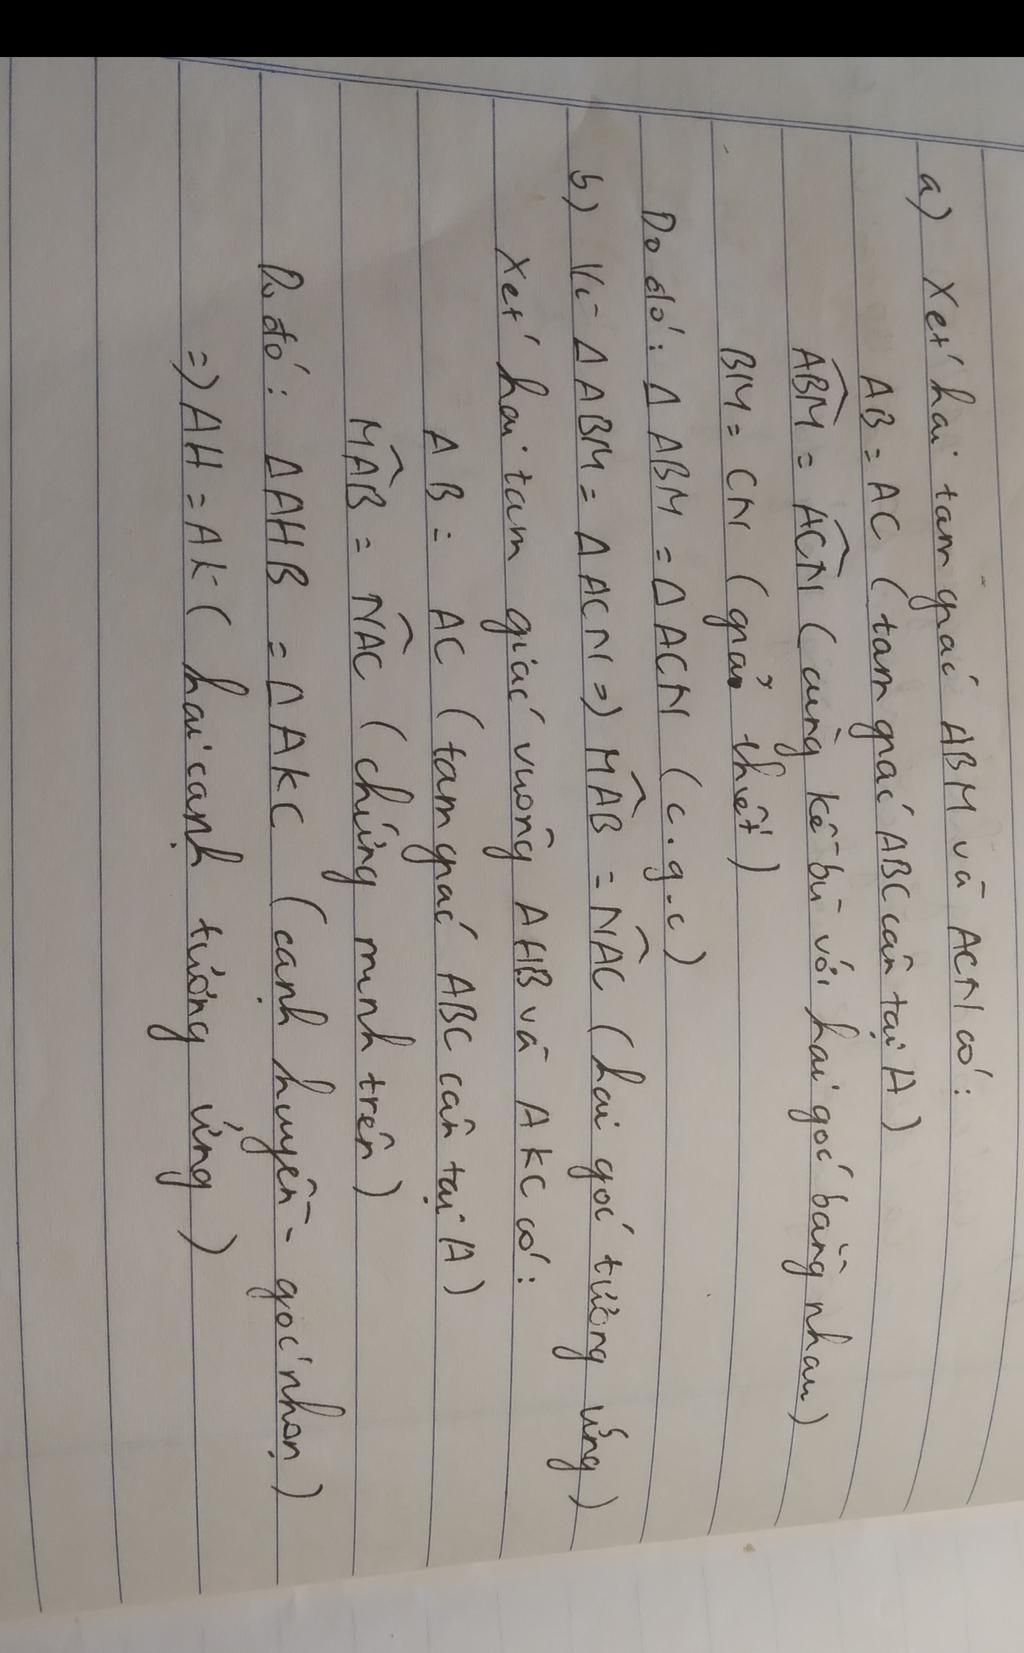 a) Xét hai tam giác ABM và ACN có:
AB = AC (tam giác ABC cân tại A)
ABM̂ = ACN̂ (cùng kề bù với hai góc bằng nhau)
BM = CN (giả thiết)
Do đó: Δ ABM = Δ ACN (c.g.c)
b) Vì Δ ABM = Δ ACN => MAB̂ = NAĈ (hai góc tương ứng)
Xét hai tam giác vuông AHB và AKC có:
AB = AC (tam giác ABC cân tại A)
MAB̂ = NAĈ (chứng minh trên)
Do đó: ΔAHB = ΔAKC (cạnh huyền - góc nhọn)
=> AH = AK (hai cạnh tương ứng)